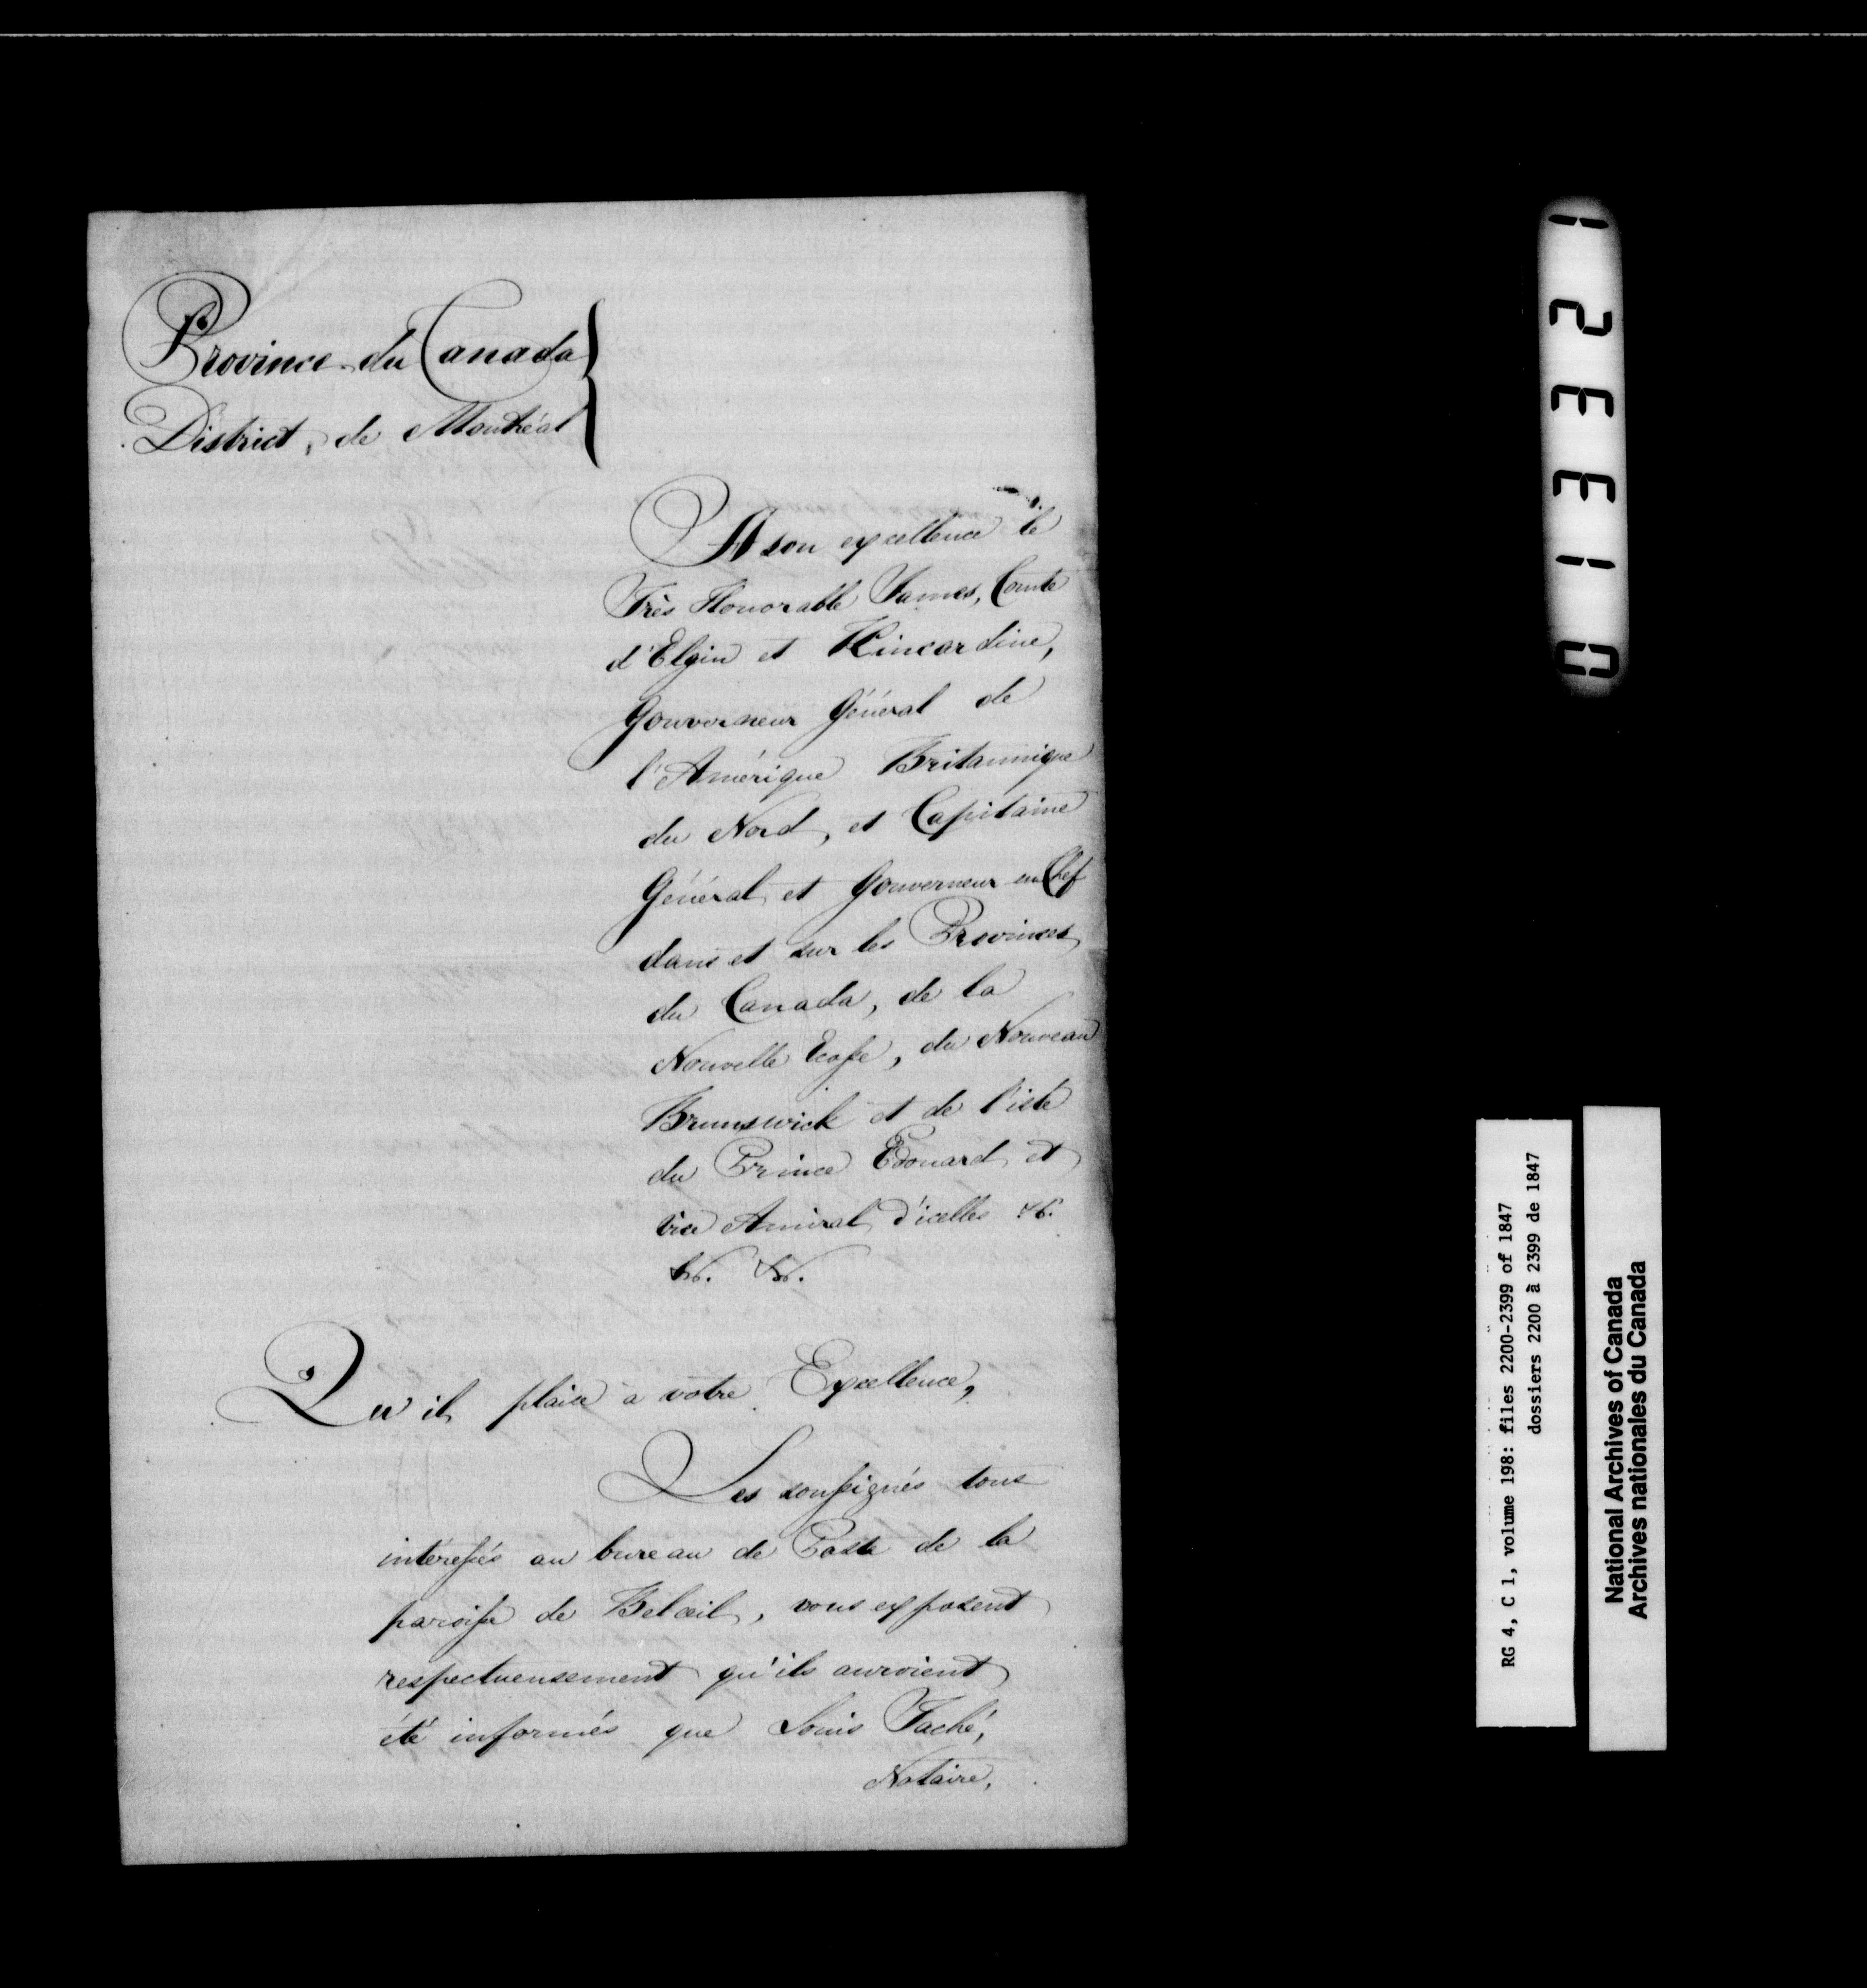 Province du Canada
District, de Montréal
A son excellence le
Très Honorable James, Comte
d'Elgin et Kincardine,
Gouverneur Général de
l'Amérique Britannique
du Nord, et Capitaine
Général et Gouverneur en Chef
dans et sur les Provinces
du Canada, de la
Nouvelle Ecosse, du Nouveau
Brunswick et de l'isle
du Prince Edouard et
vice Amiral d'icelles &c.
&c. &c.
Qu'il plaise à votre Excellence,
Les soussignés tous
intéressés au bureau de Poste de la
paroisse de Belœil, vous exposent
respectueusement qu'ils auroient
été informés que Louis Taché,
Notaire,
012331
RG 4, C 1, volume 198: files 2200-2399 of 1847
dossiers 2200 à 2399 de 1847
National Archives of Canada
Archives nationales du Canada